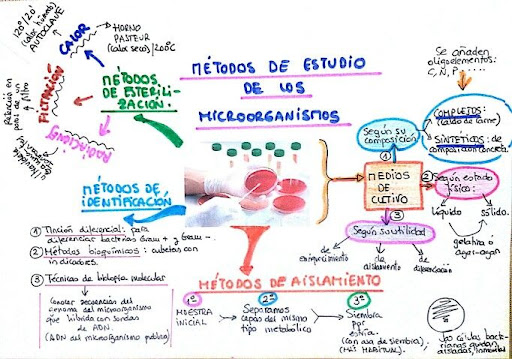 MÉTODOS DE ESTUDIO
DE LOS
MICROORGANISMOS
MÉTODOS
DE ESTERILI-
ZACIÓN.
CALOR
HORNO
PASTEUR
(calor seco)/200ºC
120º/20'
(calor húmedo)
AUTOCLAVE
FILTRACIÓN
filtro
RADIACIONES
MÉTODOS DE
IDENTIFICACIÓN
1 Tinción diferencial: para
diferenciar bacterias Gram + y Gram -
2 Métodos bioquímicos: cubetas con
indicadores.
3 Técnicas de biología molecular
Conocer secuencia del
genoma del microorganismo
que hibrida con sondas
de ADN.
(ADN del microorganismo problema)
MÉTODOS DE AISLAMIENTO
1º
MUESTRA
INICIAL
2º
Separamos
cepas del mismo
tipo metabólico
3º
Siembra
por
estría.
(con asa de siembra),
(MÁS HABITUAL)
MEDIOS
DE
CULTIVO
1
Según su
composición
Se añaden
oligoelementos:
C, N, P.....
COMPLEJOS:
(caldo de carne)
SINTÉTICOS: de
composición concreta
2
Según estado
físico:
Líquido
sólido.
gelatina ó
agar-agar
3
Según su utilidad
de
enriquecimiento
de
aislamiento
de
diferenciación
Las células bact-
erianas quedan
aisladas,